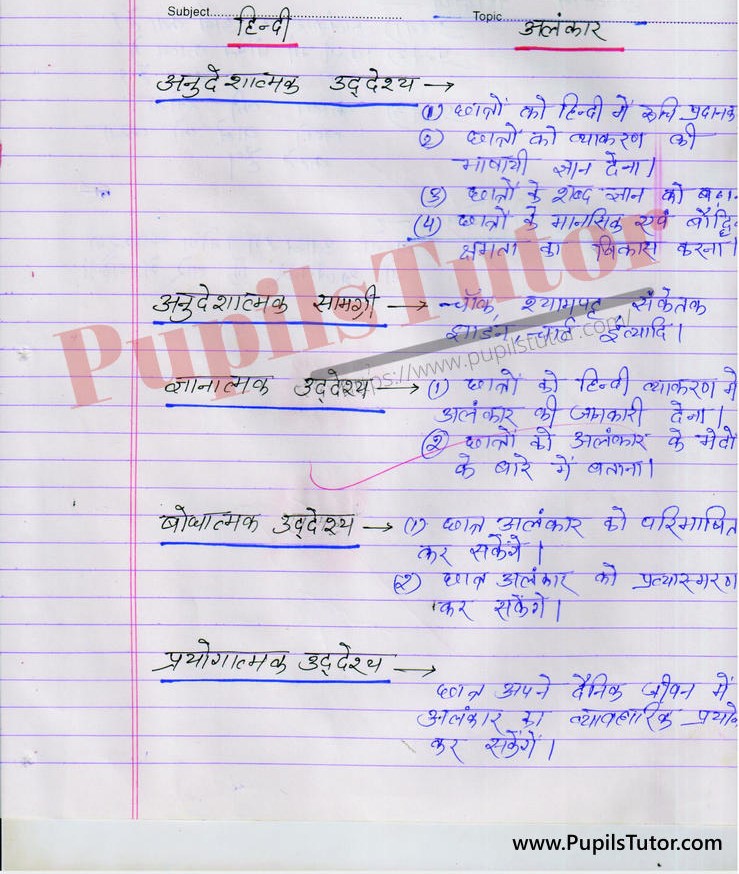 Subject हिन्दी Topic अलंकार
अनुदेशात्मक उद्देश्य →
(1) छात्रों को हिन्दी में रूचि
(2) छात्रों को व्याकरण की
भाषायी ज्ञान देना।
(3) छात्रों के शब्द ज्ञान को
(4) छात्रों के मानसिक एवं
क्षमता का विकास करना।
अनुदेशात्मक सामग्री → चॉक, श्यामपट्ट संकेतक
झाडन, चार्ट इत्यादि।
PupilsTutor
https://www.pupilstutor.com/
ज्ञानात्मक उद्देश्य → (1) छात्रों को हिन्दी व्याकरण में
अलंकार की जानकारी देना।
(2) छात्रों को अलंकार के भेदों
के बारे में बताना।
बोधात्मक उद्देश्य → (1) छात्र अलंकार को परिभाषित
कर सकेंगे।
(२) छात्र अलंकार को प्रत्यास्मरण
कर सकेंगे।
प्रयोगात्मक उद्देश्य →
छात्र अपने दैनिक जीवन में
अलंकार का व्यावहारिक
कर सकेंगें।
www.PupilsTutor.com